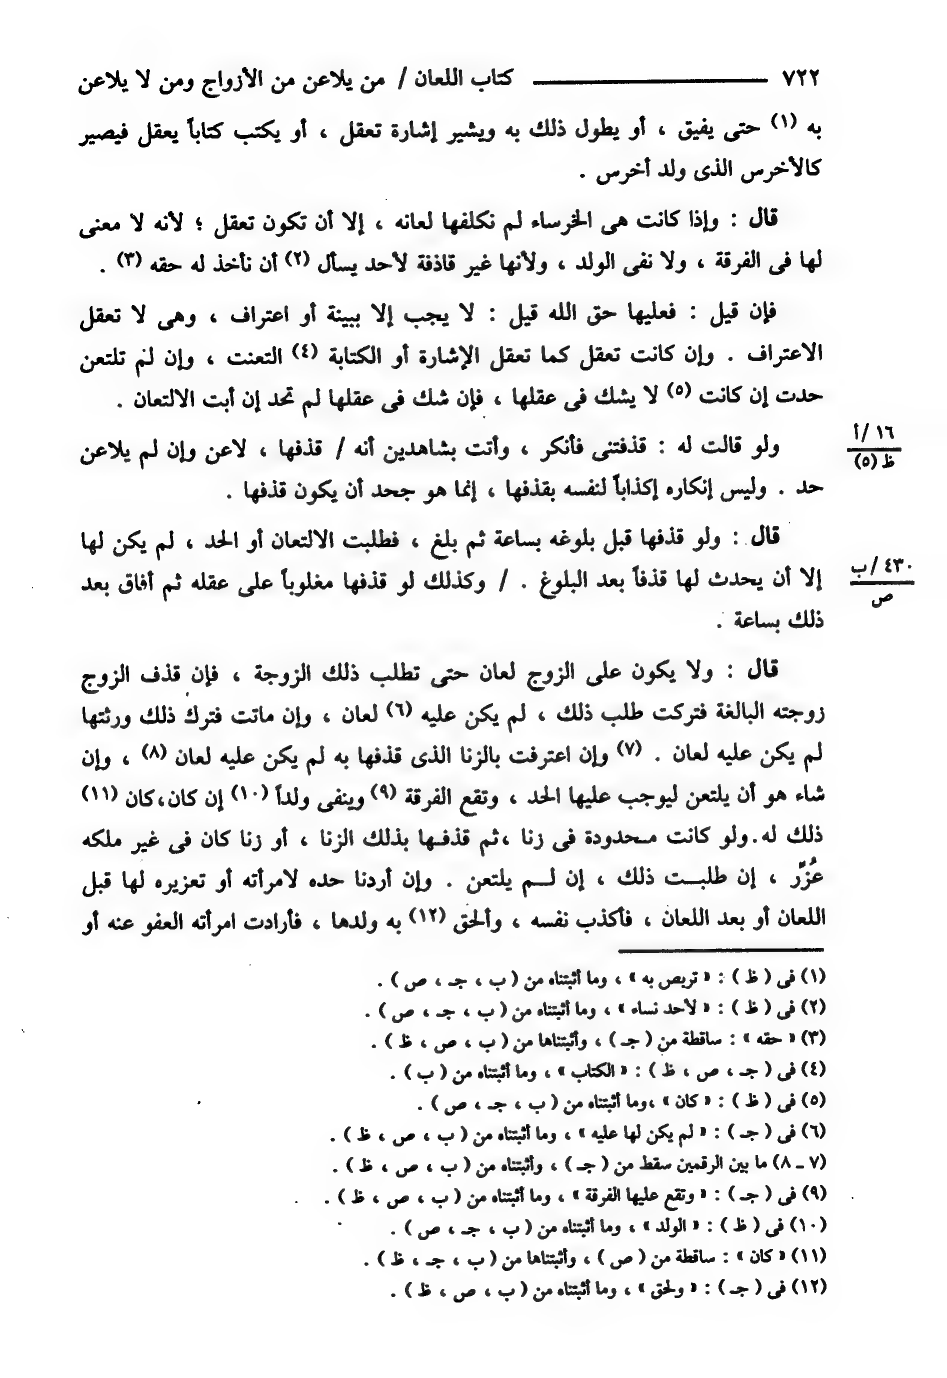 ٧٢٢ كتاب اللعان / من يلاعن من الأزواج ومن لا يلاعن
به (١) حتى يفيق ، أو يطول ذلك به ويشير إشارة تعقل ، أو يكتب كتاباً يعقل فيصير
كالأخرس الذى ولد أخرس .
قال : وإذا كانت هى الخرساء لم نكلفها لعانه ، إلا أن تكون تعقل ؛ لأنه لا معنى
لها فى الفرقة ، ولا نفى الولد ، ولأنها غير قاذفة لأحد يسأل (٢) أن نأخذ له حقه (٣) .
فإن قيل : فعليها حق الله قيل : لا يجب إلا ببينة أو اعتراف ، وهى لا تعقل
الاعتراف . وإن كانت تعقل كما تعقل الإشارة أو الكتابة (٤) التعنت ، وإن لم تلتعن
حدت إن كانت (٥) لا يشك فى عقلها ، فإن شك فى عقلها لم تحد إن أبت الالتعان .
ولو قالت له : قذفتنى فأنكر ، وأتت بشاهدين أنه / قذفها ، لاعن وإن لم يلاعن
١٦ /أ
ظ (٥)
حد . وليس إنكاره إكذاباً لنفسه بقذفها ، إنما هو جحد أن يكون قذفها .
قال : ولو قذفها قبل بلوغه بساعة ثم بلغ ، فطلبت الالتعان أو الحد ، لم يكن لها
إلا أن يحدث لها قذفاً بعد البلوغ . / وكذلك لو قذفها مغلوباً على عقله ثم أفاق بعد
٤٣٠ /ب
ص
ذلك بساعة .
قال : ولا يكون على الزوج لعان حتى تطلب ذلك الزوجة ، فإن قذف الزوج
زوجته البالغة فتركت طلب ذلك ، لم يكن عليه (٦) لعان ، وإن ماتت فترك ذلك ورثتها
لم يكن عليه لعان . (٧) وإن اعترفت بالزنا الذى قذفها به لم يكن عليه لعان (٨) ، وإن
شاء هو أن يلتعن ليوجب عليها الحد ، وتقع الفرقة (٩) وينفى ولداً (١٠) إن كان،كان (١١)
ذلك له.ولو كانت محدودة فى زنا ،ثم قذفها بذلك الزنا ، أو زنا كان فى غير ملكه
عُزِّر ، إن طلبت ذلك ، إن لم يلتعن . وإن أردنا حده لامرأته أو تعزيره لها قبل
اللعان أو بعد اللعان ، فأكذب نفسه ، وألحق (١٢) به ولدها ، فأرادت امرأته العفو عنه أو
(١) فى ( ظ ) : « تربص به » ، وما أثبتناه من ( ب ، جـ ، ص ) .
(٢) فى ( ظ ) : « لأحد نساء » ، وما أثبتناه من ( ب ، جـ ، ص ) .
(٣) « حقه » : ساقطة من ( جـ ) ، وأثبتناها من ( ب ، ص ، ظ ) .
(٤) فى ( جـ ، ص ، ظ ) : « الكتاب » ، وما أثبتناه من ( ب ) .
(٥) فى ( ظ ) : « كان » ،وما أثبتناه من ( ب ، جـ ، ص ) .
(٦) فى ( جـ ) : « لم يكن لها عليه » ، وما أثبتناه من ( ب ، ص ، ظ ) .
(٧ ـ ٨) ما بين الرقمين سقط من ( جـ ) ، وأثبتناه من ( ب ، ص ، ظ ) .
(٩) فى ( جـ ) : « وتقع عليها الفرقة » ، وما أثبتناه من ( ب ، ص ، ظ ) .
(١٠) فى ( ظ ) : « الولد » ، وما أثبتناه من ( ب ، جـ ، ص ) .
(١١) « كان » : ساقطة من ( ص ) ، وأثبتناها من ( ب ، جـ ، ظ ) .
(١٢) فى ( جـ ) : « ولحق » ، وما أثبتناه من ( ب ، ص ، ظ ) .